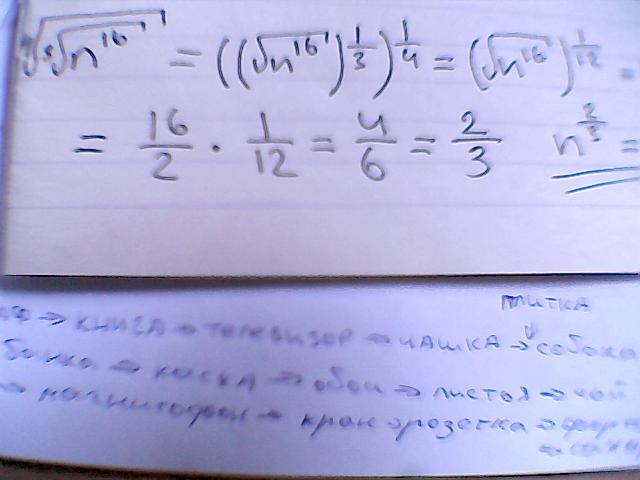 ∜∛√n¹⁶ = ((√n¹⁶)^(1/3))^(1/4) = (√n¹⁶)^(1/12) =
= 16/2 · 1/12 = 4/6 = 2/3 n^(2/3) =
плитка
→ книга → телевизор → чашка → собака
банка → миска → обои → листья → чай
→ магнитофон → кран → розетка →